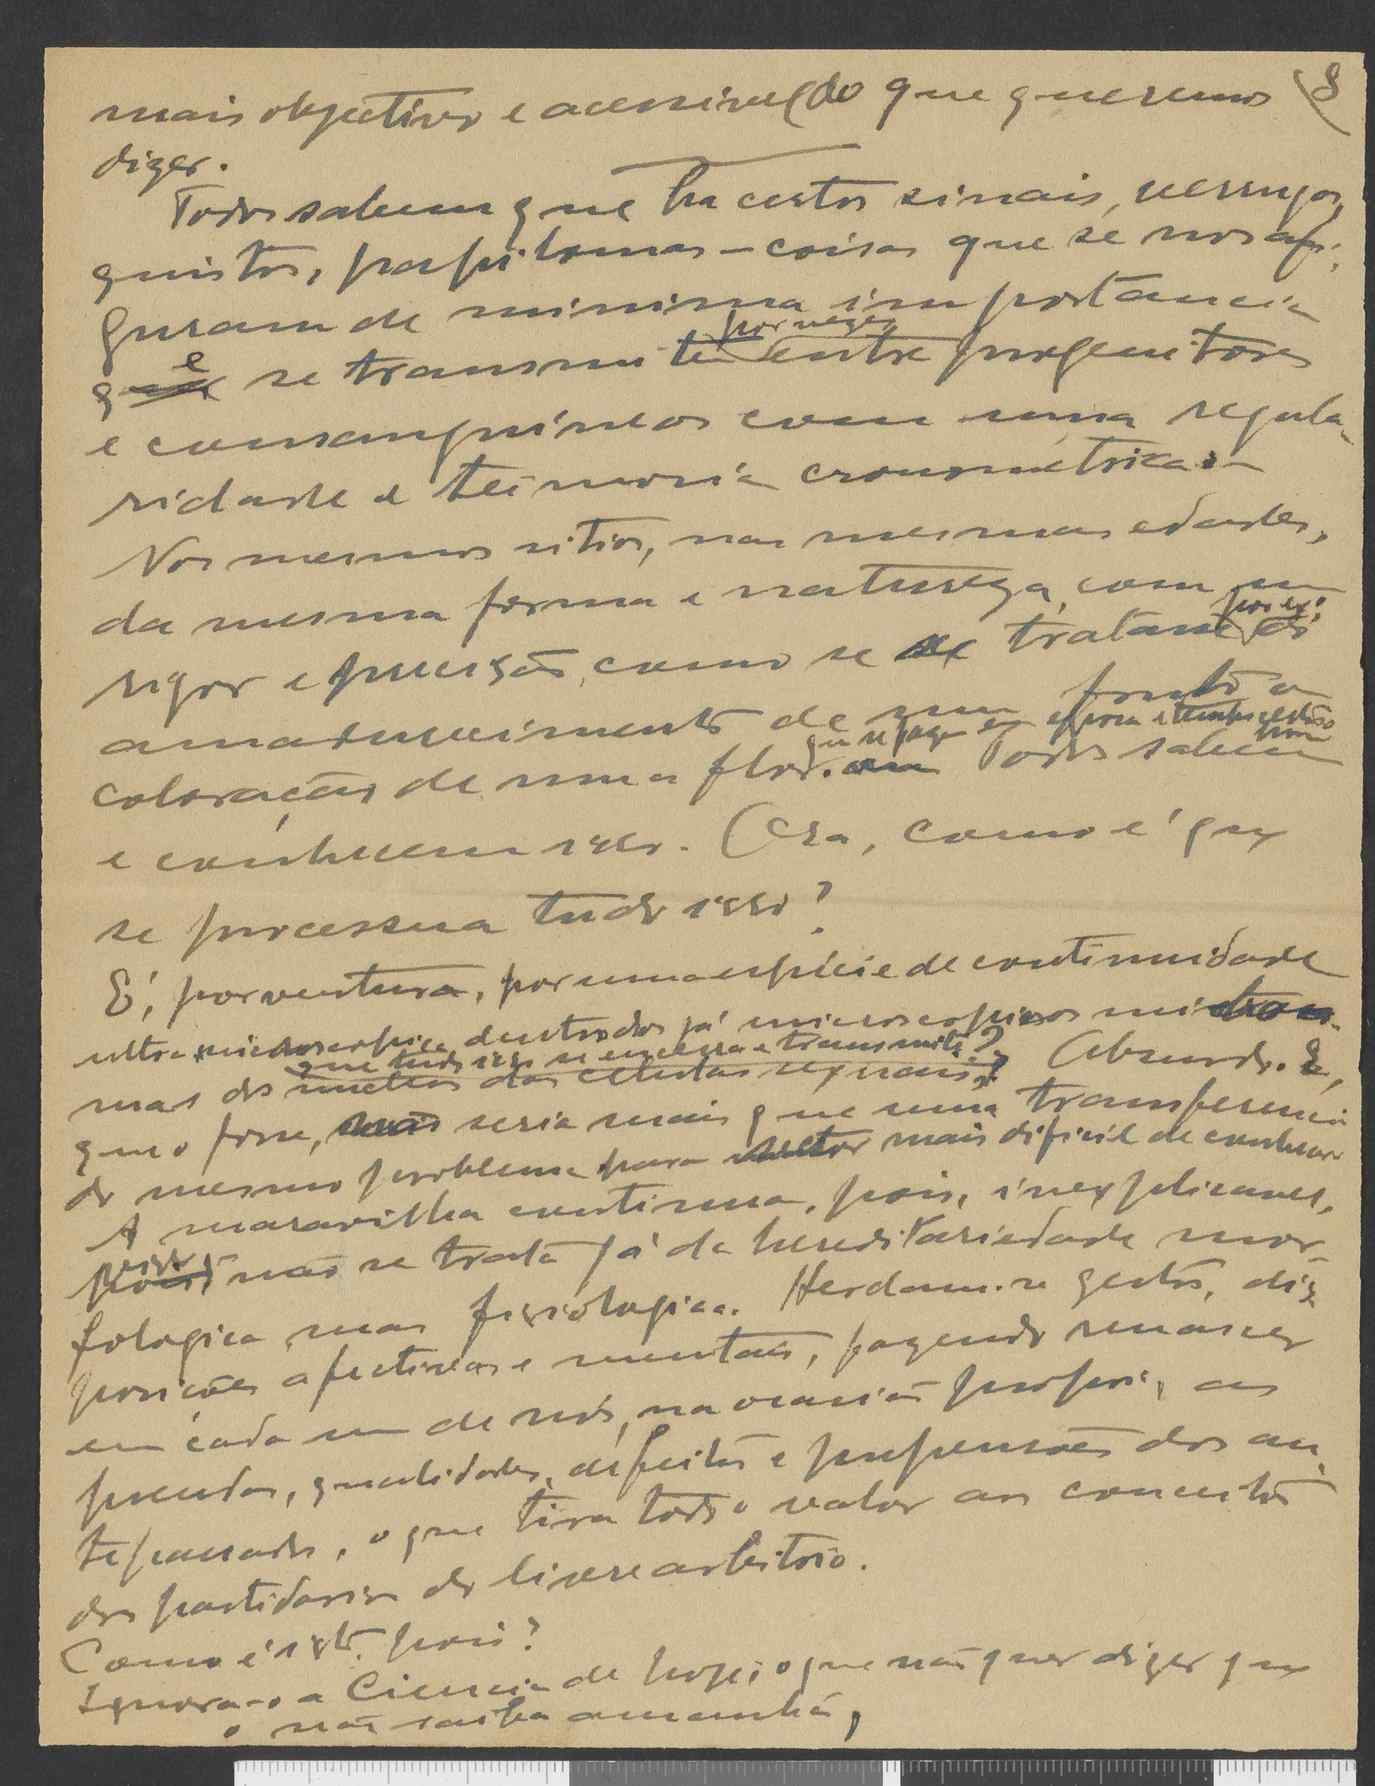 mais objectivo e acessivel do que queremos 8
dizer.
Todos sabem que ha certos sinais, verrugas,
quistos, papilomas - coisas que se nos afi-
guram de minima importancia
que se transmitem por vezes entre progenitores
e consanguineos com uma regula-
ridade e teimosia cronométrica
Nos mesmos sitios, nas mesmas edades,
da mesma forma e natureza, com um
rigor e precisão, como se tratasse por ex:
amadurecimento de um fruto ou
coloração de uma flor. que se faz em epoca e tempo
Todos sabem
e conhecem isso. Ora, como é que
se processa tudo isso?
É, porventura, por uma espécie de continuidade
ultra-microscopica dentro dos já microscopicos
que tudo isso se encerra e transmite?
mas dos nucleos das celulas sexuais? Absurdo. E,
que o fosse, seria mais que uma transferencia
do mesmo problema para mais dificil de conhecer
A maravilha continua, pois, inexplicavel,
não se trata já da hereditariedade mor-
fologica, mas fisiologica. Herdam-se gestos, dis-
posições afectivas e mentais, fazendo renascer
em cada um de nós, na ocasião propria, as
prendas, qualidades, defeitos e propensões dos an-
tepassados, o que tira todo o valor aos conceitos
dos partidarios do livre arbitrio.
Como é isto, pois?
Ignora-o a Ciencia de hoje, o que não quer dizer que
o não saiba amanhã,